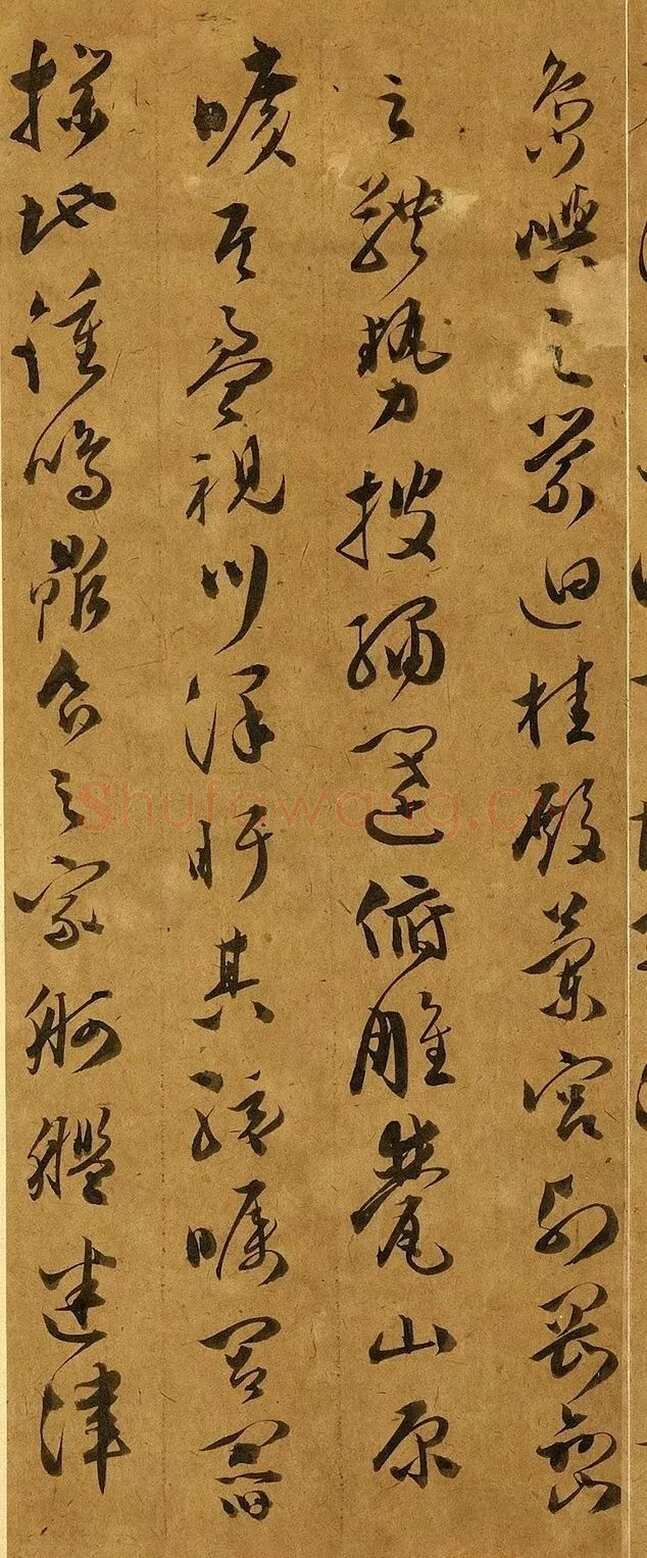 島嶼之縈迴桂殿蘭宮列岡巒
之體勢披繡闥俯雕甍山原
曠其盈視川澤盱其駭矚閭閻
撲地鍾鳴鼎食之家舸艦迷津